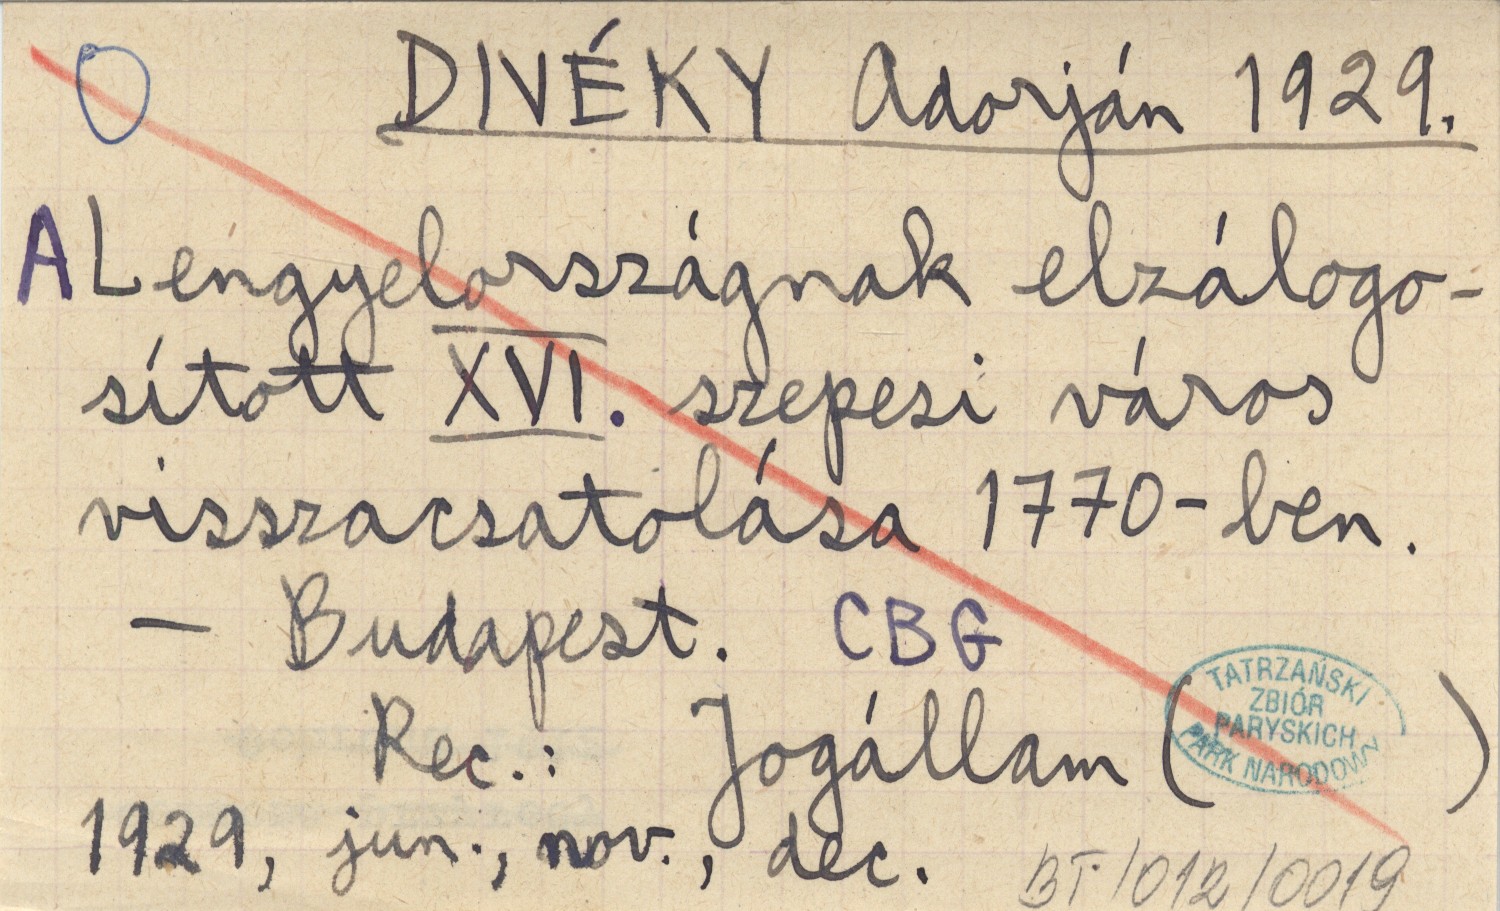 DIVÉKY Adorján 1929.
A Lengyelországnak elzálogo-
sított XVI. szepesi város
visszacsatolása 1770-ben.
— Budapest. CBG
Rec.: Jogállam ( )
1929, jun., nov., dec.
TATRZAŃSKI
ZBIÓR
PARYSKICH
PARK NARODOWY
BT/012/0019